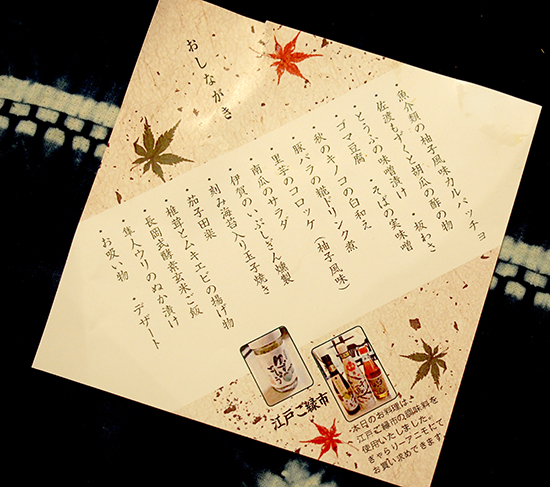 おしながき
・魚介類の柚子風味カルパッチョ
・佐渡もずくと胡瓜の酢の物　・板わさ
・とうふの味噌漬け　・そばの実味噌
・ゴマ豆腐
・秋のキノコの白和え
・豚バラの糀ドリンク煮
・里芋のコロッケ（柚子風味）
・南瓜のサラダ
・伊賀のいぶしぎん燻製
・刻み海苔入り玉子焼き
・茄子田楽
・椎茸とムキエビの揚げ物
・長岡式酵素玄米ご飯
・隼人ウリのぬか漬け
・お吸い物　・デザート
江戸ご縁市
本日のお料理は、
江戸ご縁市の調味料を
使用いたしました。
ぎゃらりーアニモにて
お買い求めできます。